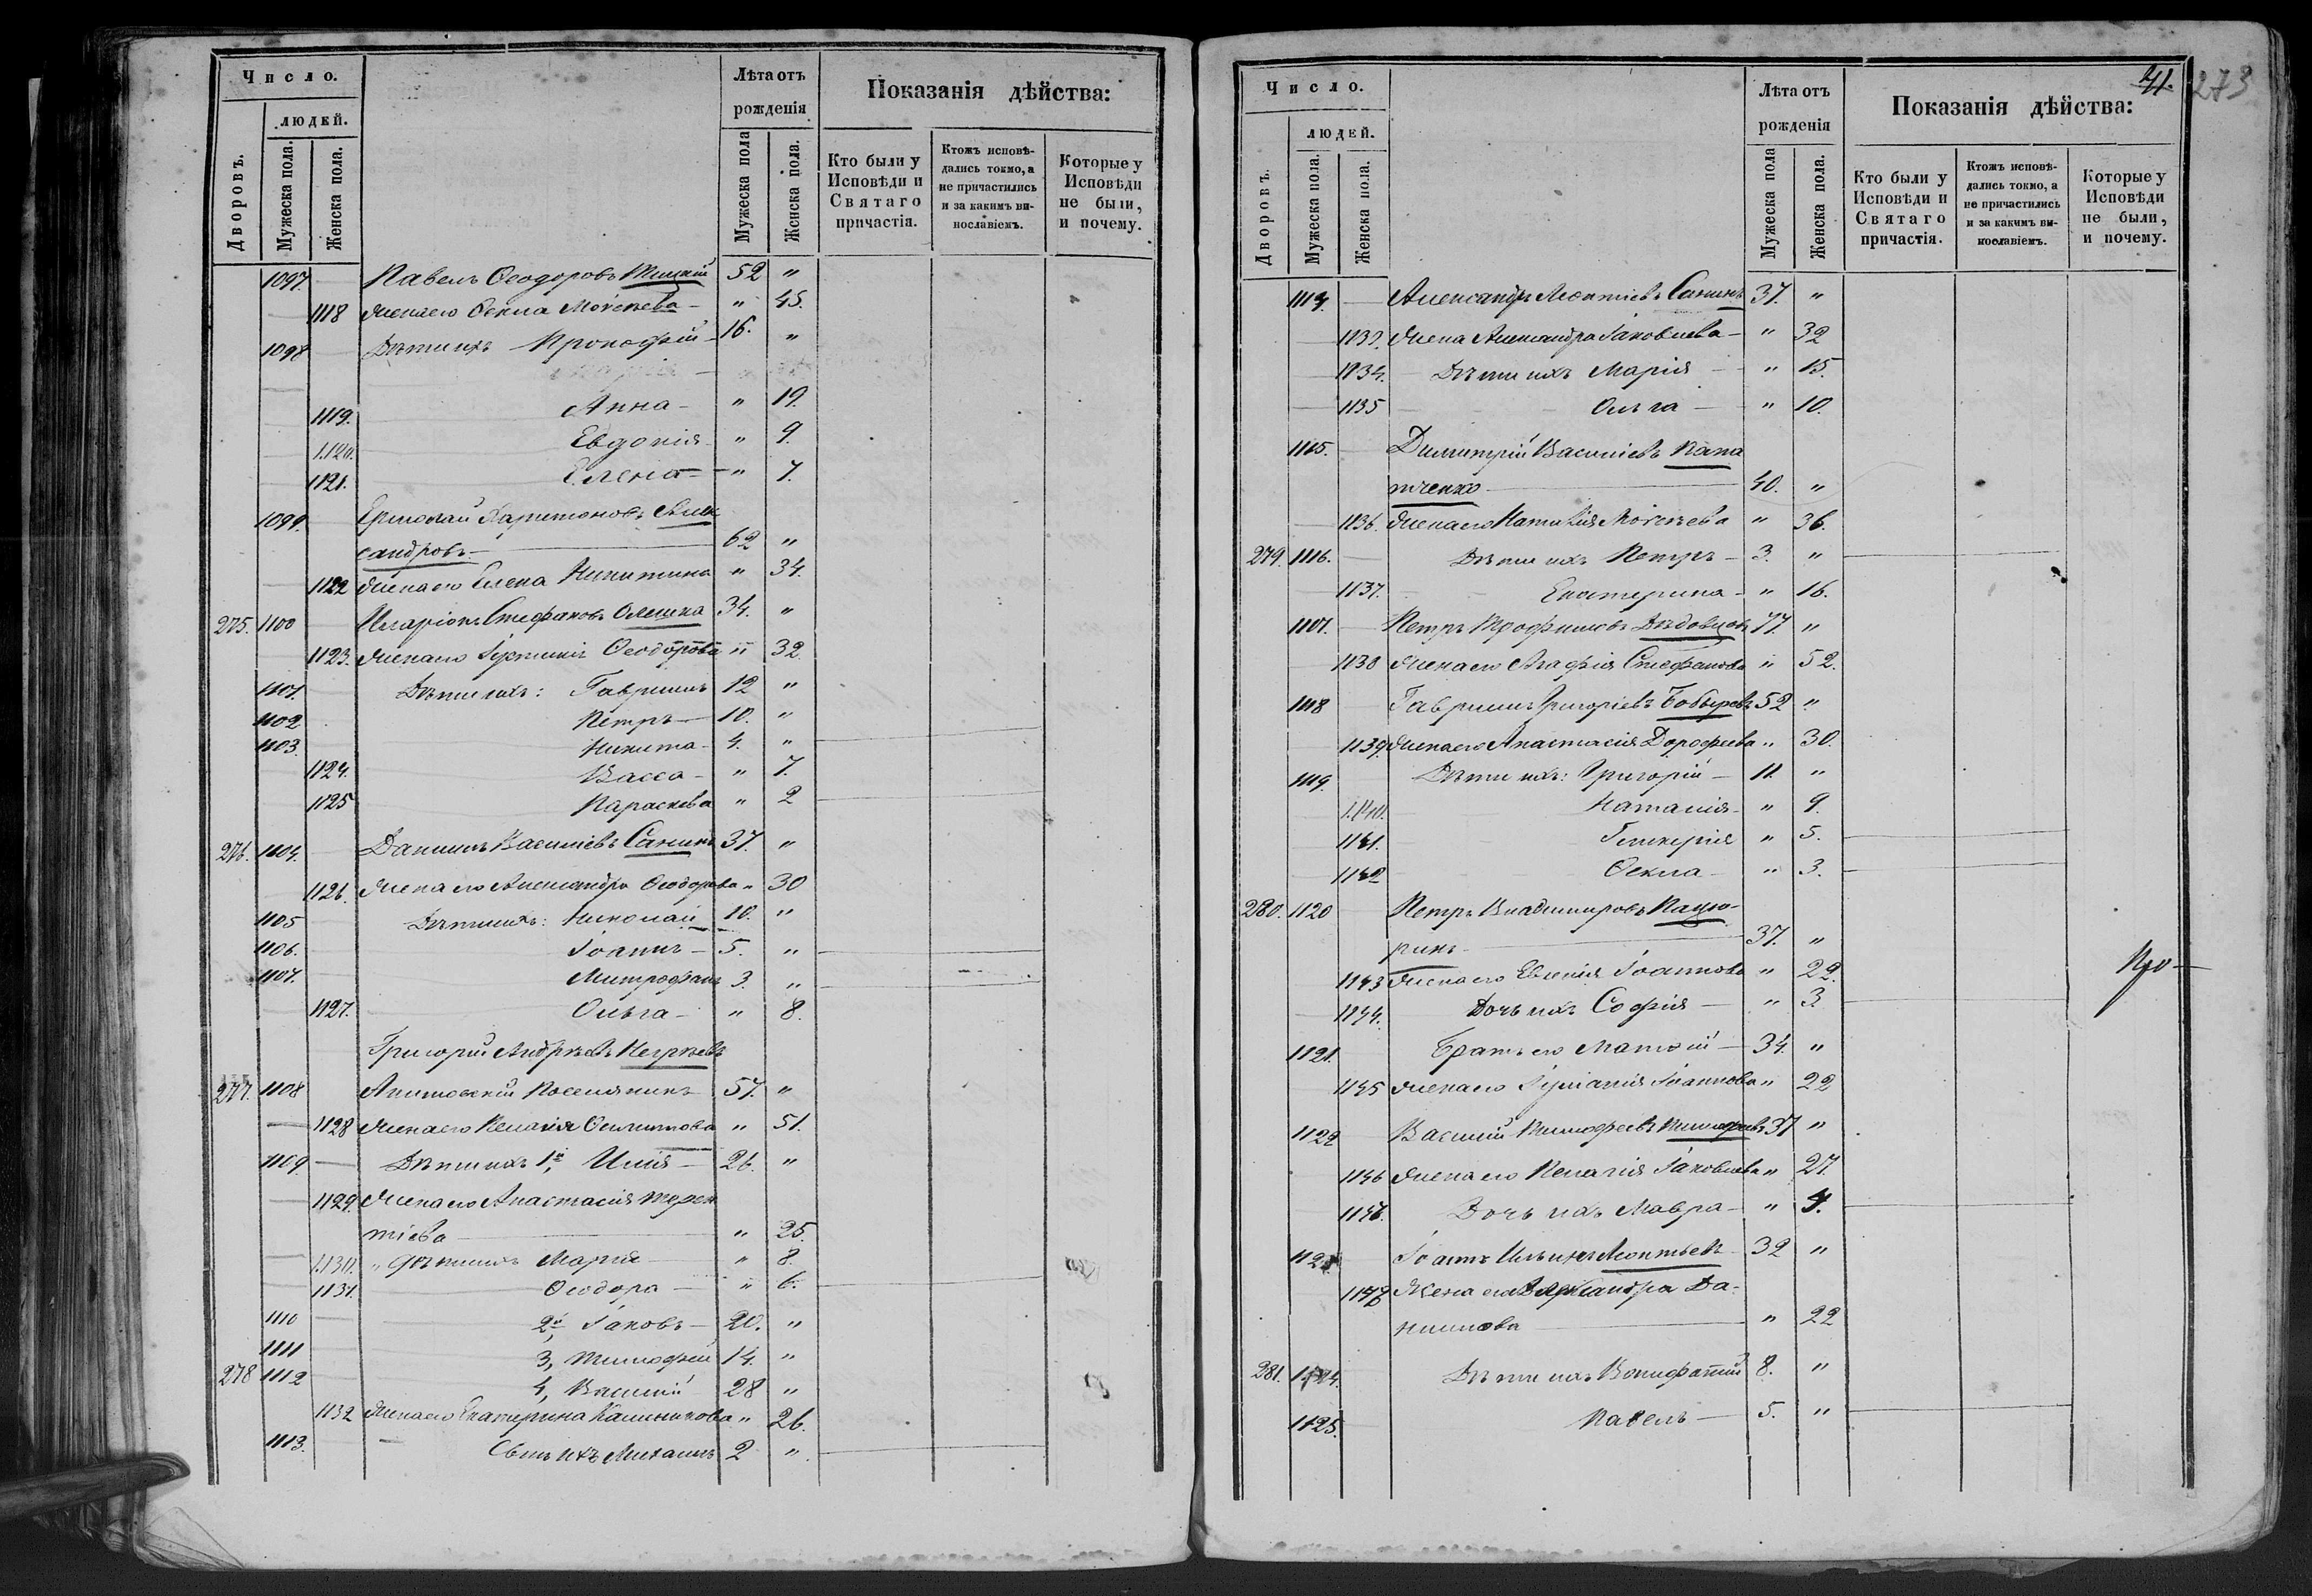 Число.
людей.
Дворовъ.
Мужеска пола.
Женска пола.
Лѣта отъ рожденія
Мужеска пола
Женска пола.
Показанія дѣйства:
Кто были у Исповѣди и Святаго причастія.
Ктожъ исповѣ-дались токмо, а не причастились и за какимъ ви-нославіемъ.
Которые у Исповѣди не были, и почему.
1097. Павелъ Ѳеодоровъ 52 "
1118 Жена его Ѳекла Моѵсеева " 45.
1098 Дѣти ихъ Прокофій 16. "
1119. Анна " 19.
1120. Евдокія " 9.
1121. Елена " 7.
1099. Ермолай Харитоновъ Алек
сандровъ 62 "
1122 Жена его Елена Никитина " 34.
275. 1100 Иларіонъ Стефановъ Олешка 34. "
1123. Жена его Ѳеодорова " 32
1101. Дѣти ихъ: Гавріилъ 12 "
1102 Петръ 10. "
1103. Никита 4. "
1124. Васса " 7.
1125 Параскева " 2
276. 1104. Даніилъ Василіевъ Санинъ 37. "
1126. Жена его Александра Ѳеодорова " 30
1105 Дѣти ихъ: Николай 10. "
1106. Іоаннъ 5. "
1107. Митрофанъ 3. "
1127. Ольга " 8.
Григорій Андрѣевъ
277. 1108 Поселянинъ 57. "
1128 Жена его Пелагія Филиппова " 51.
1109. Дѣти ихъ 1й, Илія 26. "
1129. Жена его Анастасія Терен
тіева " 25.
1130. " дѣти ихъ Марія " 8.
1131. Ѳеодора " 6.
1110 2й, Іаковъ 20. "
1111 3, Тимофей 14. "
278 1112 4, Василій 28 "
1132 Жена его Екатерина Калиникова " 26.
1113. Сынъ ихъ Михаилъ 2 "
41.
273
Число.
людей.
Дворовъ.
Мужеска пола.
Женска пола.
Лѣта отъ рожденія
Мужеска пола
Женска пола.
Показанія дѣйства:
Кто были у Исповѣди и Святаго причастія.
Ктожъ исповѣ-дались токмо, а не причастились и за какимъ ви-нославіемъ.
Которые у Исповѣди не были, и почему.
1114. Александръ Леонтіевъ Санинъ 37. "
1133. Жена Александра Іаковлева " 32
1134. Дѣти ихъ Марія " 15.
1135 Ольга " 10.
1115. Димитрій Василіевъ
тченко 40. "
1136. Жена его Наталія Моѵсеева " 36.
279. 1116. Дѣти ихъ Петръ 3. "
1137. Екатерина " 16.
1117. Петръ Трофимовъ Дѣдовцовъ 77. "
1138 Жена его Агафія Стефанова " 52.
1118 Гавріилъ Григоріевъ Бобыревъ 52 "
1139. Жена его Анастасія Дорофеева " 30.
1119. Дѣти ихъ: Григорій 11. "
1140. Наталія " 9.
1141. Гликерія " 5.
1142 Ѳекла " 3.
280. 1120 Петръ Владиміровъ
ринъ 37. "
1143 Жена его Евгенія Іоаннова " 22.
1144. Дочь ихъ Софія " 3
1121. Братъ его Матѳій 34. "
1145 Жена его Іуліанія Іоаннова " 22
1122 Василій Тимофеевъ Тимофеевъ 37 "
1146 Жена его Пелагія Іаковлева " 27
1147. Дочь ихъ Мавра " 4.
1123 Іоаннъ Ильинъ Леонтьевъ 32 "
1148 Жена его Александра Да-
ниилова " 22
281. 1124. Дѣти ихъ Вонифатій 8. "
1125. Павелъ 5. "
Про-